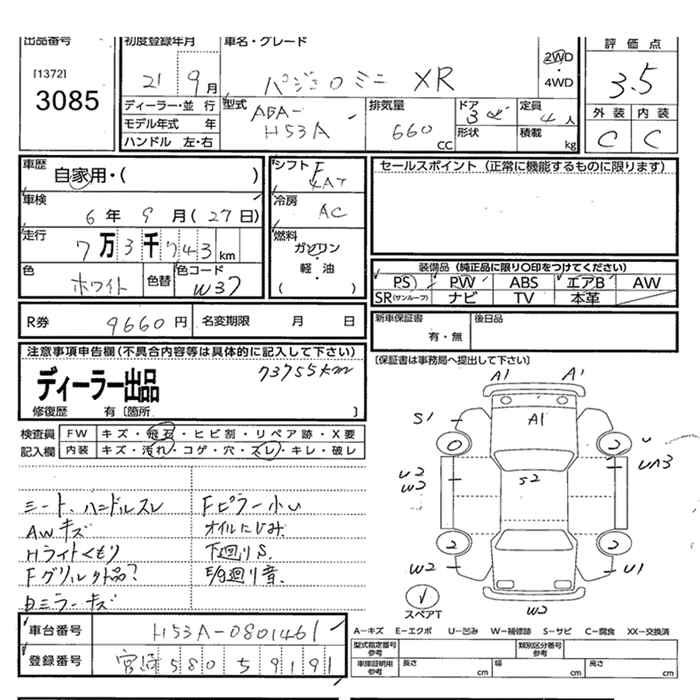 出品番号 初度登録年月 車名・グレード 評価点
[1372] 3085
21 9月 パジェロミニ XR 2WD ・ 4WD 3.5
ディーラー・並行 型式 ABA-H53A 排気量 660 CC ドア 3 形状 定員 4人 積載 kg 外装 内装
モデル年式 年 C C
ハンドル 左・右
車歴 自家用・( ) シフト F 4AT セールスポイント (正常に機能するものに限ります)
車検 6年 9月 (27日) 冷房 AC
走行 7万3千743km 燃料 ガソリン・軽・油 ( )
色 ホワイト 色替 色コード W37
装備品 (純正品に限り○印をつけてください)
PS PW ABS エアB AW
SR(サンルーフ) ナビ TV 本革
R券 9660円 名変期限 月 日 新車保証書 有・無 後日品
注意事項申告欄(不具合内容等は具体的に記入して下さい) [保証書は事務局へ提出して下さい]
ディーラー出品 73755km
修復歴 有 [箇所 ]
検査員記入欄 FW キズ・飛石・ヒビ割・リペア跡・X要
内装 キズ・汚れ・コゲ・穴・スレ・キレ・破レ
シート、ハンドルスレ Fピラー小U
AWキズ オイルにじみ
Hライトくもり 下廻りS.
Fグリル外品? E/g廻り音.
Dミラーキズ
A1 A'
S1 A1
2 2
U2 W2 S2 UA3
2 2
W2 U1
スペアT W2
車台番号 H53A-0801461
登録番号 宮崎580 5 9191
A−キズ E−エクボ U−凹み W−補修跡 S−サビ C−腐食 XX−交換済
型式指定番号 参考 類別区分番号 参考
車庫証明用 参考 長さ cm 幅 cm 高さ cm